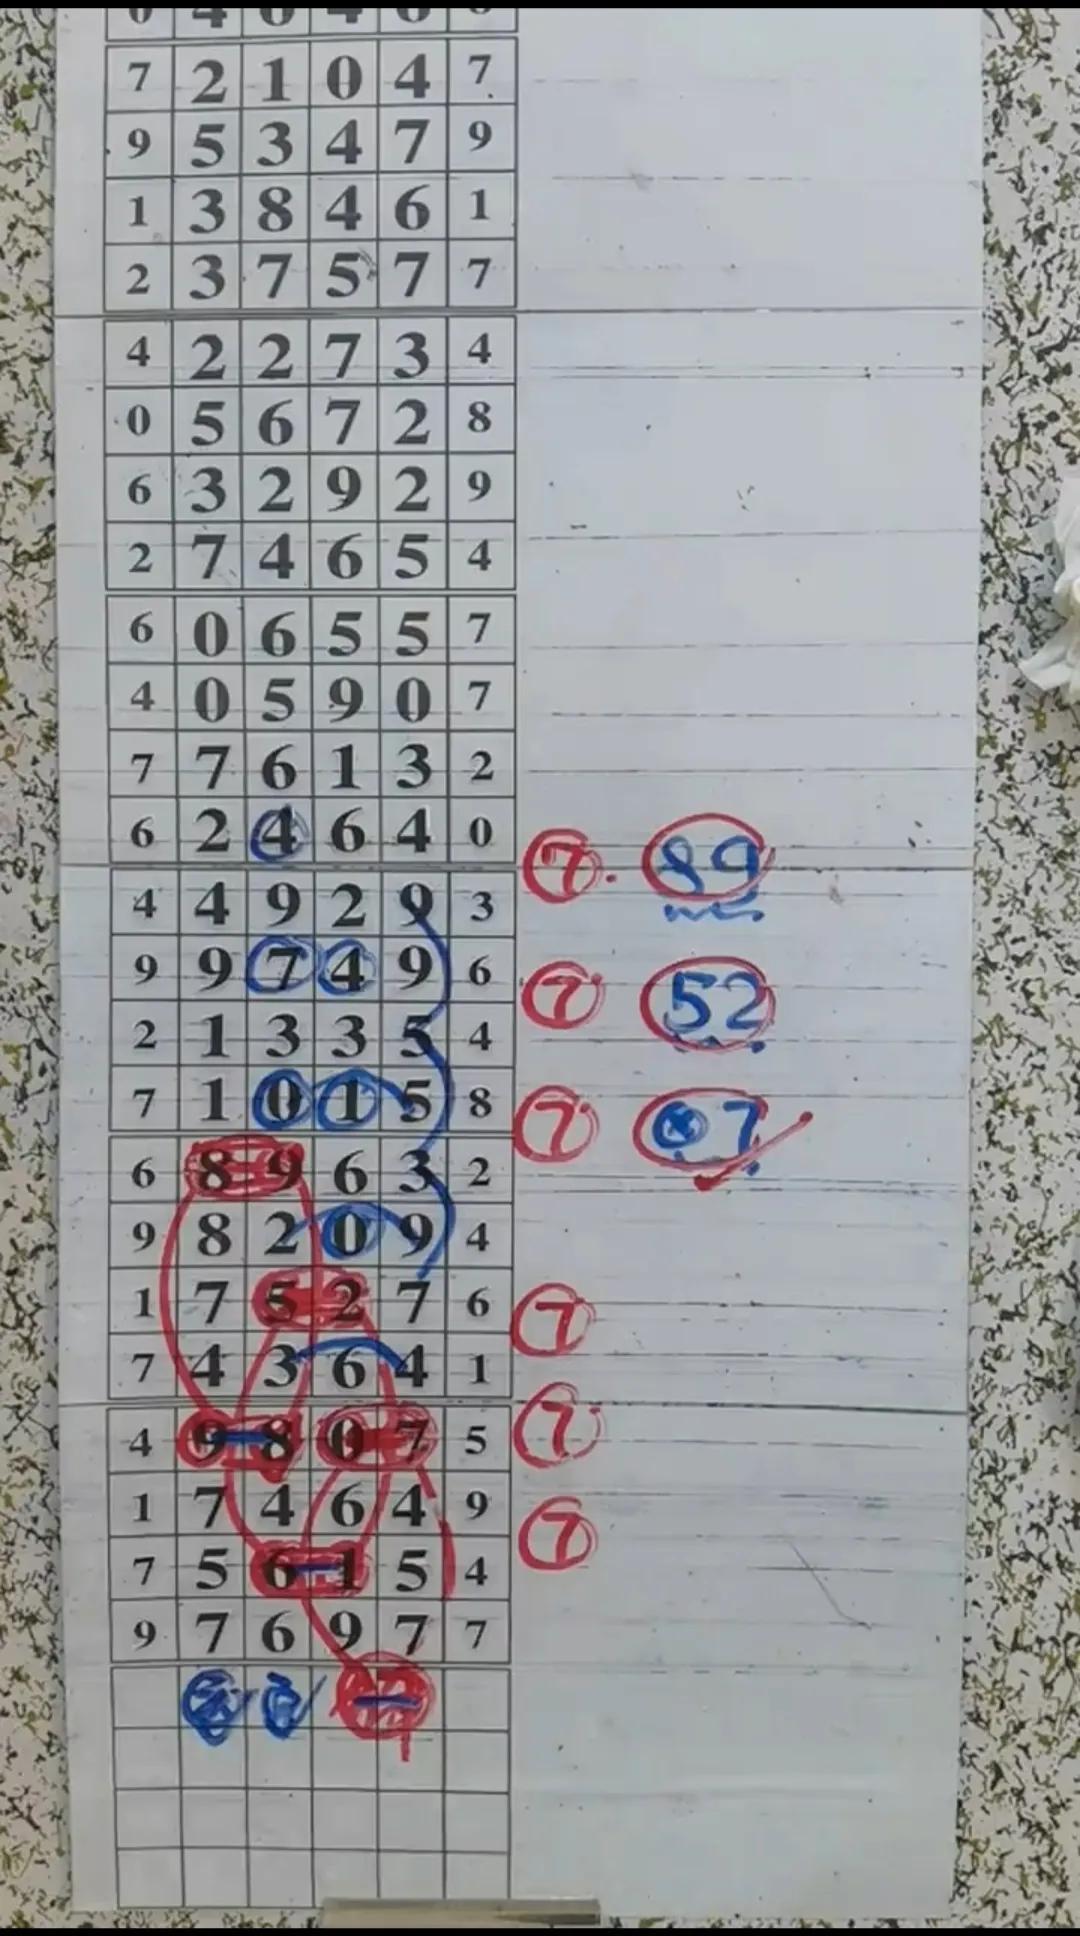 7 2 1 0 4 7
9 5 3 4 7 9
1 3 8 4 6 1
2 3 7 5 7 7
4 2 2 7 3 4
0 5 6 7 2 8
6 3 2 9 2 9
2 7 4 6 5 4
6 0 6 5 5 7
4 0 5 9 0 7
7 7 6 1 3 2
6 2 4 6 4 0 7. 89
4 4 9 2 9 3
9 9 7 4 9 6 7 52
2 1 3 3 5 4
7 1 0 1 5 8 7 7
6 8 9 6 3 2
9 8 2 0 9 4
1 7 5 2 7 6 7
7 4 3 6 4 1
4 9 8 0 7 5 7
1 7 4 6 4 9
7 5 6 1 5 4 7
9 7 6 9 7 7